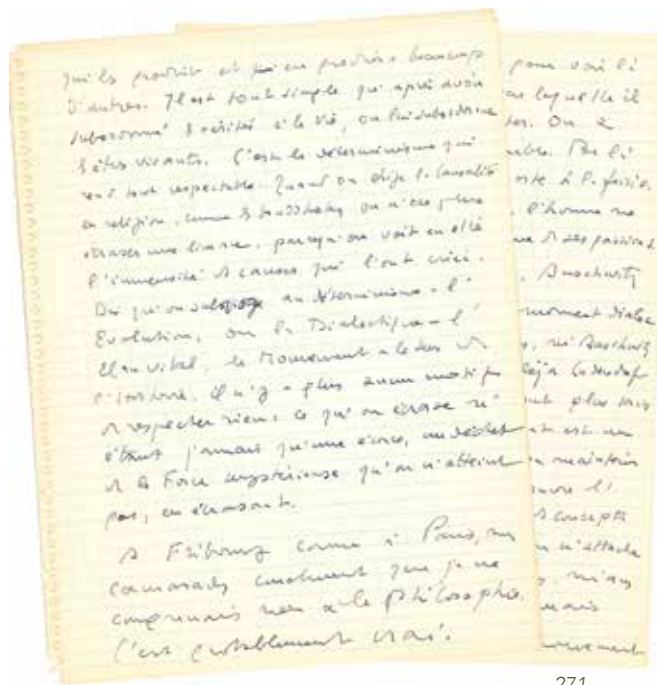 qui les produit et qui en produira beaucoup
d'autres. Il est tout simple qu'après avoir
subordonné la vérité à la Vie, on lui subordonne
les êtres vivants. C'est le déterminisme qui
rend tout respectable. Quand on érige la causalité
en religion, comme les bouddhistes, on n'ose plus
écraser une limace, parce qu'on voit en elle
l'immensité des causes qui l'ont créée.
Dès qu'on au déterminisme l'
Evolution, ou la Dialectique l'
Elan vital, le Mouvement le sens de
l'histoire, il n'y a plus aucun motif
de respecter rien, ce qu'on écrase n'
étant jamais qu'une écorce, un déchet
de la Force mystérieuse qu'on n'atteint
pas, en écrasant.
A Fribourg comme à Paris, mes
camarades que je ne
comprenais rien à la Philosophie.
C'est probablement vrai.
pour voir
laquelle il
On a
Par là
l'homme ne
de ses passions
Auschwitz
moment
ni Auschwitz
déjà
plus
est un
maintenir
l'
concepts
n'attache
mais
mouvement
271